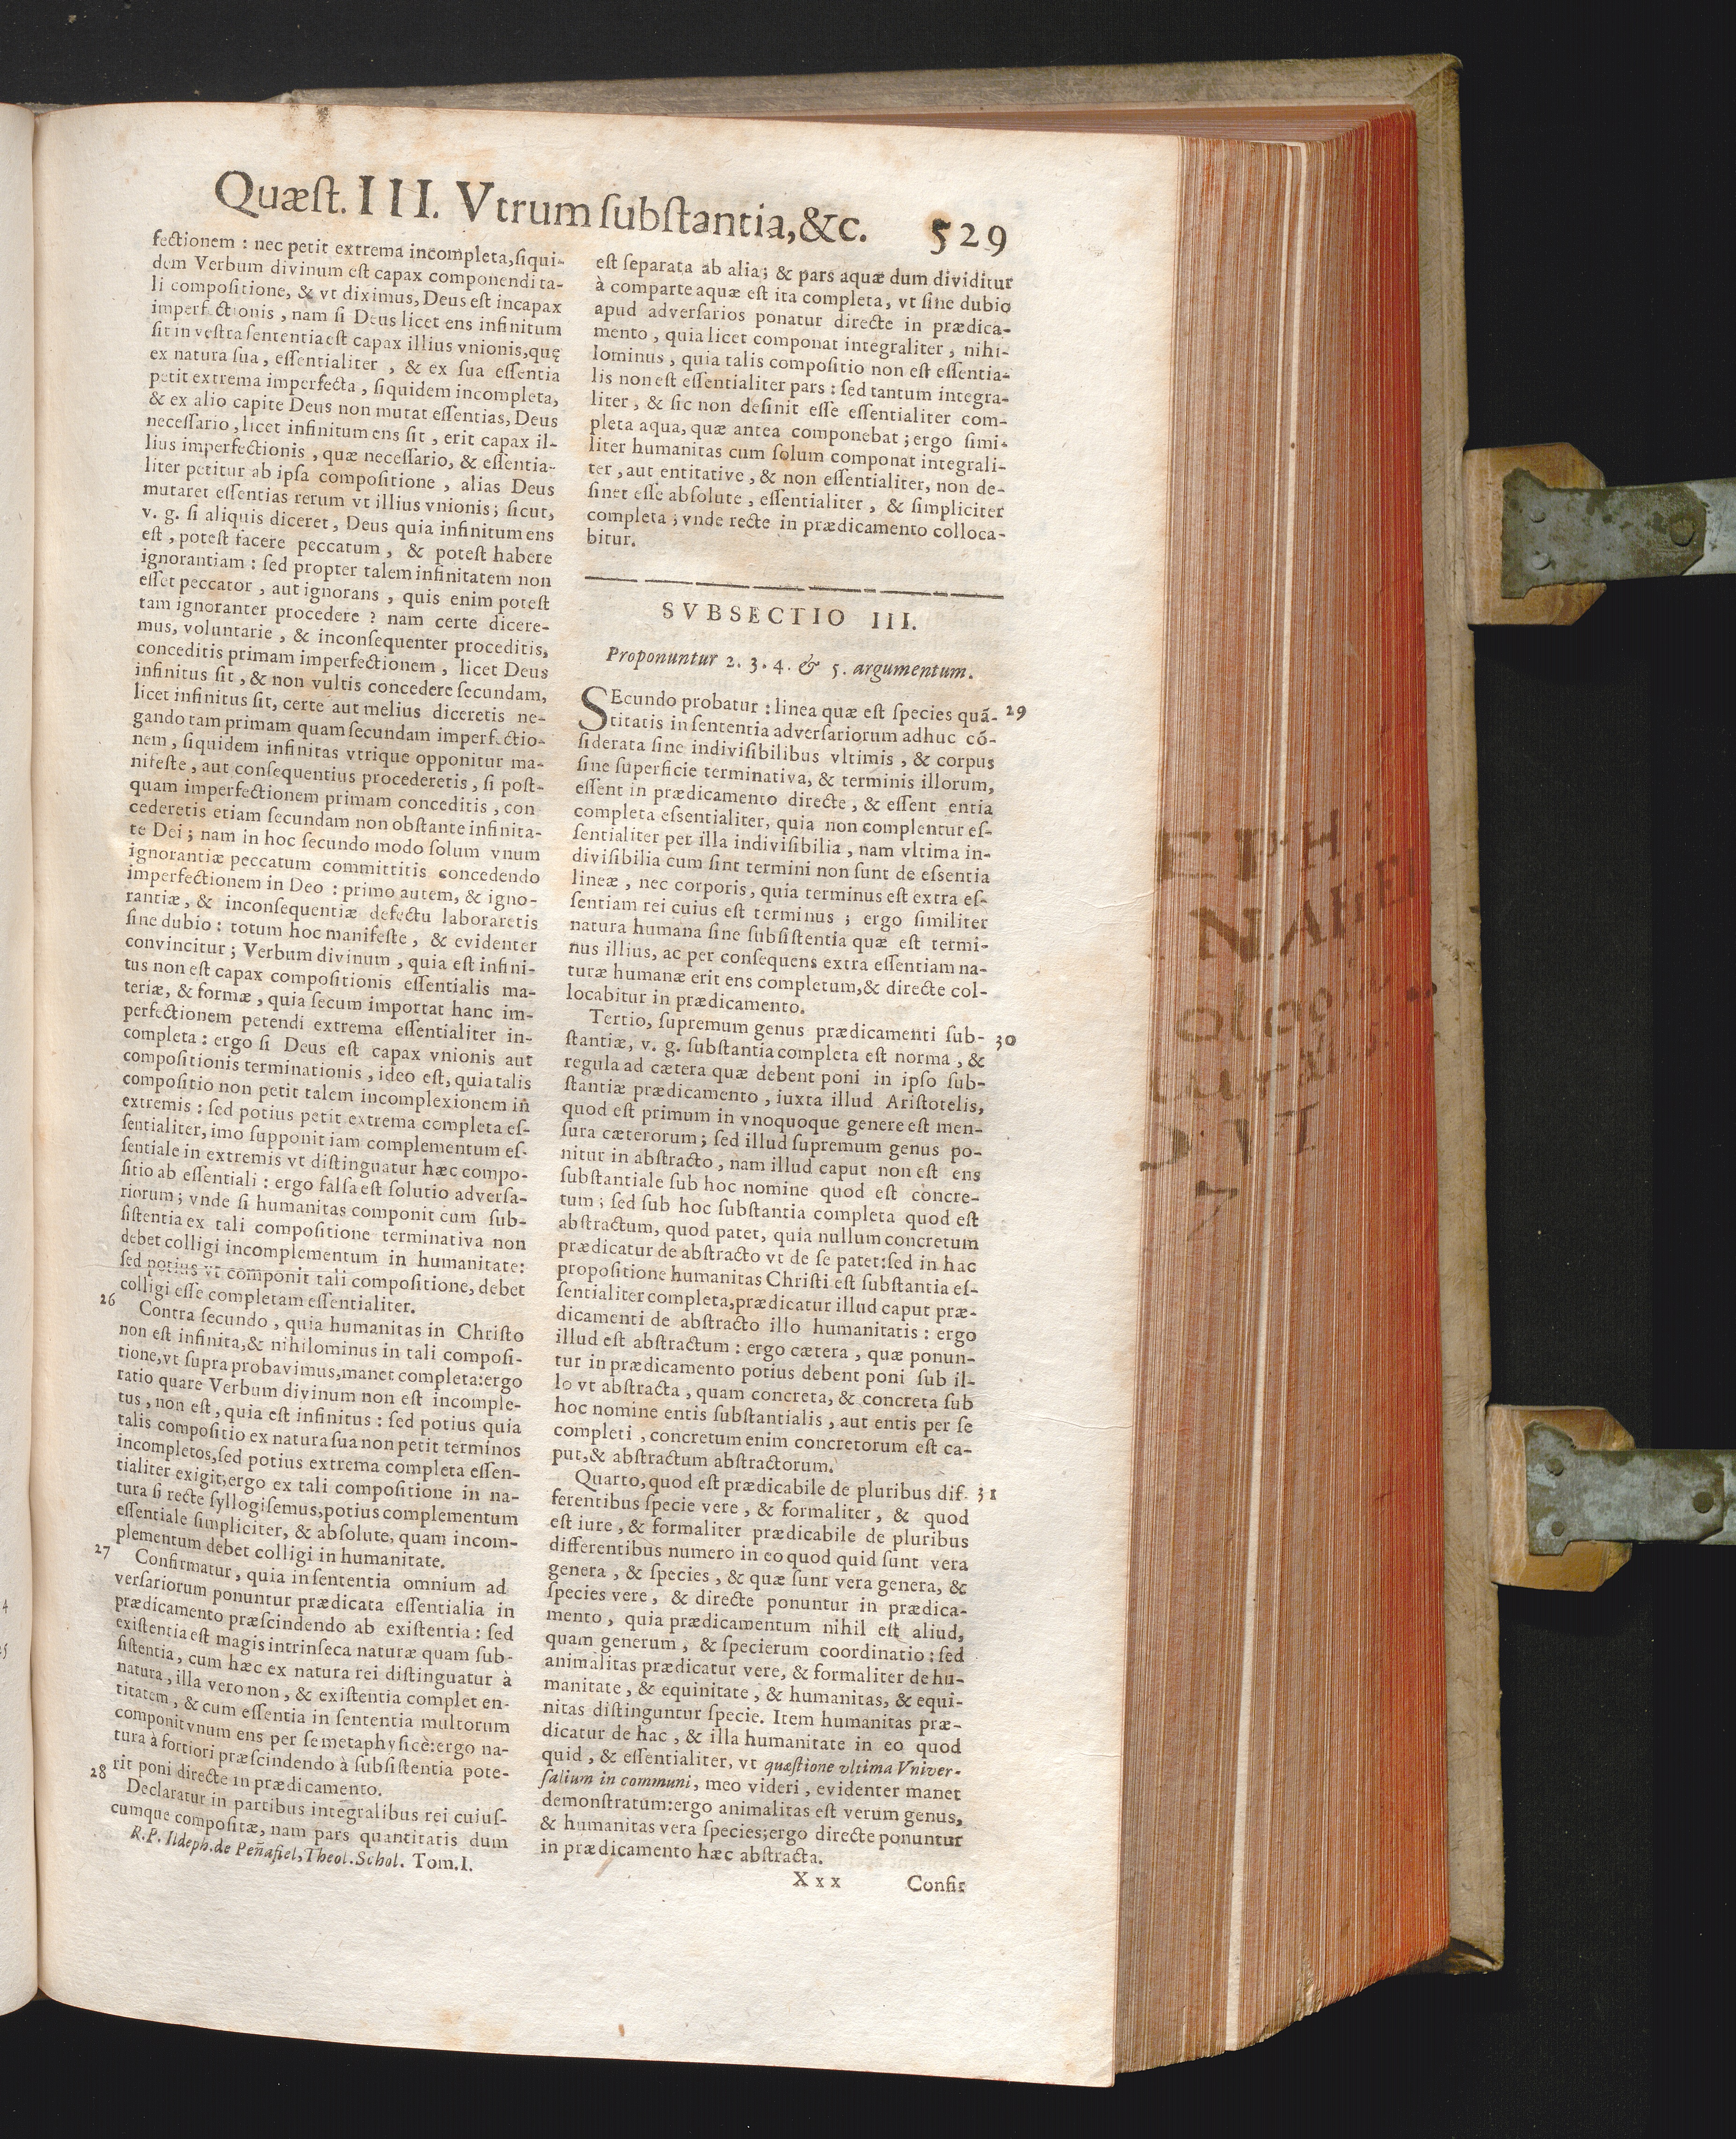 Quæst. III. Vtrum substantia, &c. 529
fectionem : nec petit extrema incompleta, siqui-
dem Verbum divinum est capax componendi ta-
li compositione, & vt diximus, Deus est incapax
imperfectionis, nam si Deus licet ens infinitum
sit in vestra sententia est capax illius vnionis, quę
ex natura sua, essentialiter, & ex sua essentia
petit extrema imperfecta, siquidem incompleta,
& ex alio capite Deus non mutat essentias, Deus
necessario, licet infinitum ens sit, erit capax il-
lius imperfectionis, quæ necessario, & essentia-
liter petitur ab ipsa compositione, alias Deus
mutaret essentias rerum vt illius vnionis; sicut,
v. g. si aliquis diceret, Deus quia infinitum ens
est, potest facere peccatum, & potest habere
ignorantiam : sed propter talem infinitatem non
esset peccator, aut ignorans, quis enim potest
tam ignoranter procedere ? nam certe dicere-
mus, voluntarie, & inconsequenter proceditis,
conceditis primam imperfectionem, licet Deus
infinitus sit, & non vultis concedere secundam,
licet infinitus sit, certe aut melius diceretis ne-
gando tam primam quam secundam imperfectio-
nem, siquidem infinitas vtrique opponitur ma-
nifeste, aut consequentius procederetis, si post-
quam imperfectionem primam conceditis, con
cederetis etiam secundam non obstante infinita-
te Dei; nam in hoc secundo modo solum vnum
ignorantiæ peccatum committitis concedendo
imperfectionem in Deo : primo autem, & igno-
rantiæ, & inconsequentiæ defectu laboraretis
sine dubio : totum hoc manifeste, & evidenter
convincitur; Verbum divinum, quia est infini-
tus non est capax compositionis essentialis ma-
teriæ, & formæ, quia secum importat hanc im-
perfectionem petendi extrema essentialiter in-
completa : ergo si Deus est capax vnionis aut
compositionis terminationis, ideo est, quia talis
compositio non petit talem incomplexionem in
extremis : sed potius petit extrema completa es-
sentialiter, imo supponit iam complementum es-
sentiale in extremis vt distinguatur hæc compo-
sitio ab essentiali : ergo falsa est solutio adversa-
riorum; vnde si humanitas componit cum sub-
sistentia ex tali compositione terminativa non
debet colligi incomplementum in humanitate:
sed potius vt componit tali compositione, debet
colligi esse completam essentialiter.
26 Contra secundo, quia humanitas in Christo
non est infinita, & nihilominus in tali composi-
tione, vt supra probavimus, manet completa: ergo
ratio quare Verbum divinum non est incomple-
tus, non est, quia est infinitus : sed potius quia
talis compositio ex natura sua non petit terminos
incompletos, sed potius extrema completa essen-
tialiter exigit, ergo ex tali compositione in na-
tura si recte syllogisemus, potius complementum
essentiale simpliciter, & absolute, quam incom-
plementum debet colligi in humanitate.
27 Confirmatur, quia in sententia omnium ad
versariorum ponuntur prædicata essentialia in
prædicamento præscindendo ab existentia : sed
existentia est magis intrinseca naturæ quam sub-
sistentia, cum hæc ex natura rei distinguatur à
natura, illa vero non, & existentia complet en-
titatem, & cum essentia in sententia multorum
componit vnum ens per se metaphysicè: ergo na-
tura à fortiori præscindendo à subsistentia pote-
rit poni directe in prædicamento.
28 Declaratur in partibus integralibus rei cuius-
cumque compositæ, nam pars quantitatis dum
R.P. Ildeph. de Peñafiel, Theol. Schol. Tom. I.
est separata ab alia; & pars aquæ dum dividitur
à comparte aquæ est ita completa, vt sine dubio
apud adversarios ponatur directe in prædica-
mento, quia licet componat integraliter, nihi-
lominus, quia talis compositio non est essentia-
lis non est essentialiter pars : sed tantum integra-
liter, & sic non desinit esse essentialiter com-
pleta aqua, quæ antea componebat; ergo simi-
liter humanitas cum solum componat integrali-
ter, aut entitative, & non essentialiter, non de-
sinet esse absolute, essentialiter, & simpliciter
completa; vnde recte in prædicamento colloca-
bitur.
SVBSECTIO III.
Proponuntur 2. 3. 4. & 5. argumentum.
SEcundo probatur : linea quæ est species quã- 29
titatis in sententia adversariorum adhuc cõ-
siderata sine indivisibilibus vltimis, & corpus
sine superficie terminativa, & terminis illorum,
essent in prædicamento directe, & essent entia
completa essentialiter, quia non complentur es-
sentialiter per illa indivisibilia, nam vltima in-
divisibilia cum sint termini non sunt de essentia
lineæ, nec corporis, quia terminus est extra es-
sentiam rei cuius est terminus ; ergo similiter
natura humana sine subsistentia quæ est termi-
nus illius, ac per consequens extra essentiam na-
turæ humanæ erit ens completum, & directe col-
locabitur in prædicamento.
Tertio, supremum genus prædicamenti sub- 30
stantiæ, v. g. substantia completa est norma, &
regula ad cætera quæ debent poni in ipso sub-
stantiæ prædicamento, iuxta illud Aristotelis,
quod est primum in vnoquoque genere est men-
sura cæterorum; sed illud supremum genus po-
nitur in abstracto, nam illud caput non est ens
substantiale sub hoc nomine quod est concre-
tum ; sed sub hoc substantia completa quod est
abstractum, quod patet, quia nullum concretum
prædicatur de abstracto vt de se patet: sed in hac
propositione humanitas Christi est substantia es-
sentialiter completa, prædicatur illud caput præ-
dicamenti de abstracto illo humanitatis : ergo
illud est abstractum : ergo cætera, quæ ponun-
tur in prædicamento potius debent poni sub il-
lo vt abstracta, quam concreta, & concreta sub
hoc nomine entis substantialis, aut entis per se
completi, concretum enim concretorum est ca-
put, & abstractum abstractorum.
Quarto, quod est prædicabile de pluribus dif- 31
ferentibus specie vere, & formaliter, & quod
est iure, & formaliter prædicabile de pluribus
differentibus numero in eo quod quid sunt vera
genera, & species, & quæ sunt vera genera, &
species vere, & directe ponuntur in prædica-
mento, quia prædicamentum nihil est aliud,
quam generum, & specierum coordinatio: sed
animalitas prædicatur vere, & formaliter de hu-
manitate, & equinitate, & humanitas, & equi-
nitas distinguntur specie. Item humanitas præ-
dicatur de hac, & illa humanitate in eo quod
quid, & essentialiter, vt quæstione vltima Vniver-
salium in communi, meo videri, evidenter manet
demonstratum: ergo animalitas est verum genus,
& humanitas vera species; ergo directe ponuntur
in prædicamento hæc abstracta.
Xxx Confir